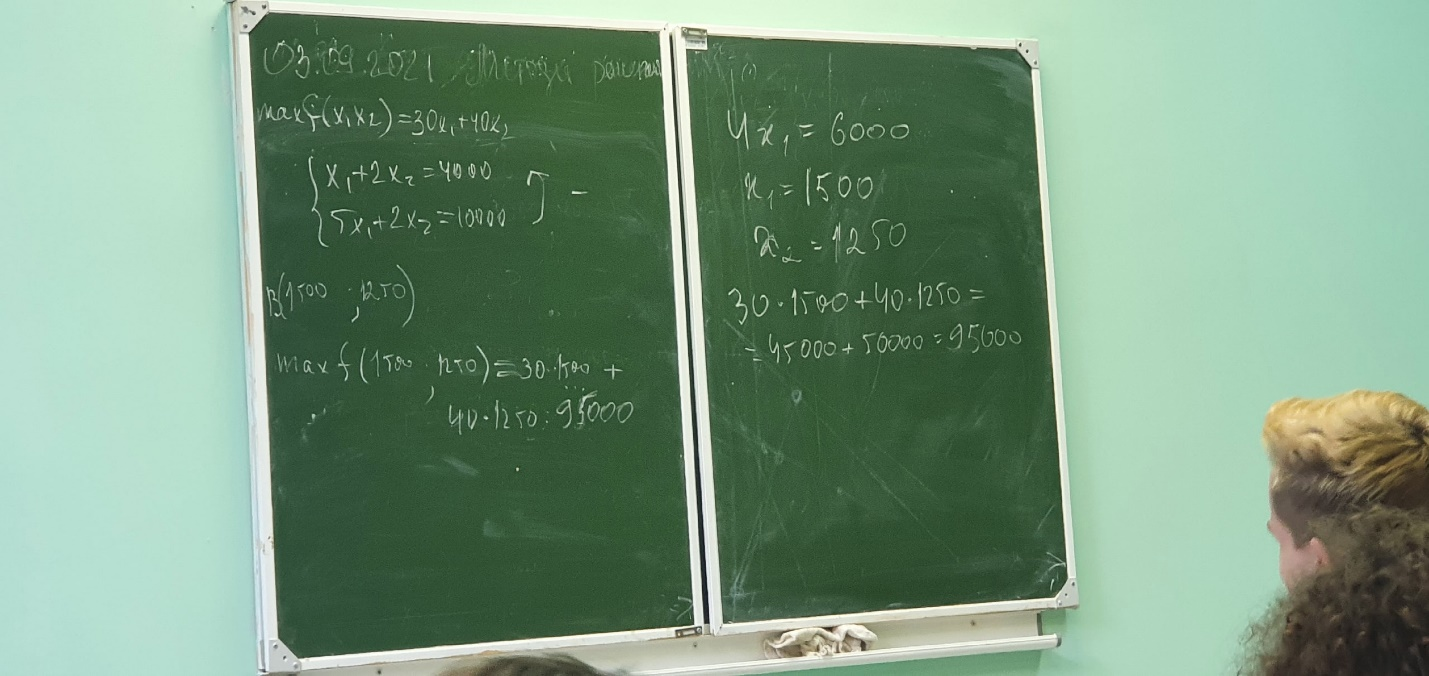 03.09.2021 Методы решения
max f(x₁x₂)=30x₁+40x₂
x₁+2x₂=4000
5x₁+2x₂=10000 ] -
B(1500 ; 1250)
max f(1500 ; 1250)=30·1500 +
40·1250=95000
4x₁=6000
x₁=1500
x₂=1250
30·1500+40·1250=
=45000+50000=95000